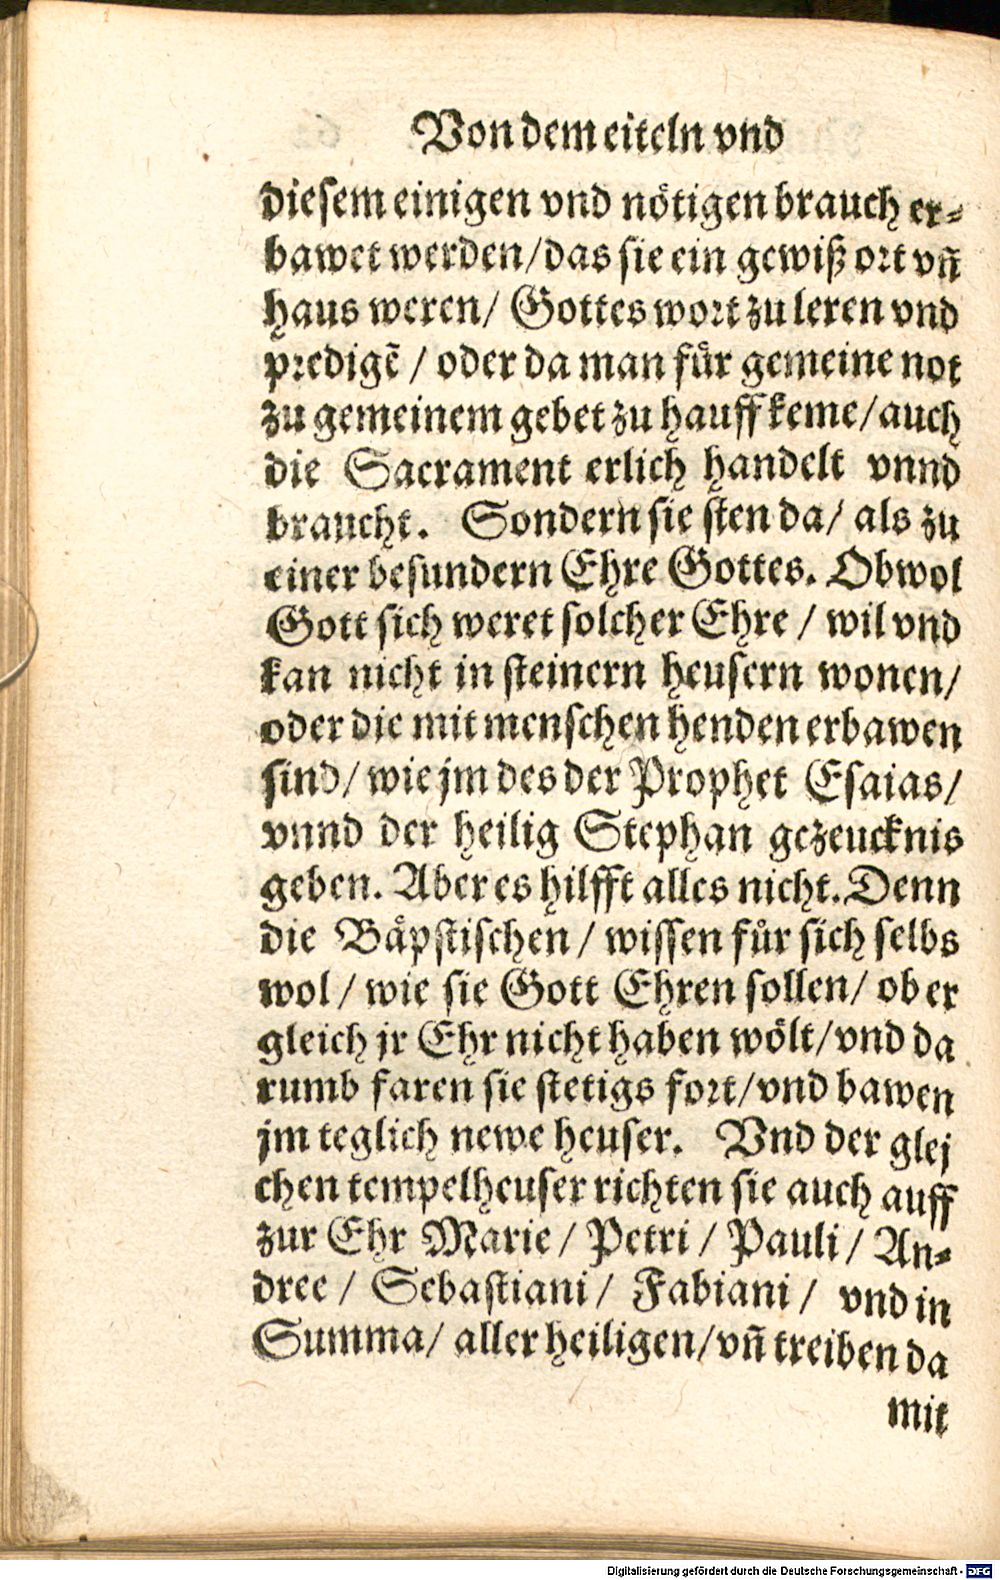 Von dem eiteln vnd
diesem einigen vnd nötigen brauch er-
bawet werden/das sie ein gewiß ort vñ
haus weren/ Gottes wort zu leren vnd
predigẽ / oder da man für gemeine not
zu gemeinem gebet zu hauff keme/auch
die Sacrament erlich handelt vnnd
braucht. Sondern sie sten da/ als zu
einer besundern Ehre Gottes. Obwol
Gott sich weret solcher Ehre / wil vnd
kan nicht in steinern heusern wonen/
oder die mit menschen henden erbawen
sind/ wie jm des der Prophet Esaias/
vnnd der heilig Stephan gezeucknis
geben. Aber es hilfft alles nicht. Denn
die Bäpstischen / wissen für sich selbs
wol / wie sie Gott Ehren sollen/ ob er
gleich jr Ehr nicht haben wölt/vnd da
rumb faren sie stetigs fort/vnd bawen
jm teglich newe heuser. Vnd der glej
chen tempelheuser richten sie auch auff
zur Ehr Marie / Petri / Pauli / An-
dree / Sebastiani / Fabiani / vnd in
Summa/ aller heiligen/vñ treiben da
mit
Digitalisierung gefördert durch die Deutsche Forschungsgemeinschaft - DFG